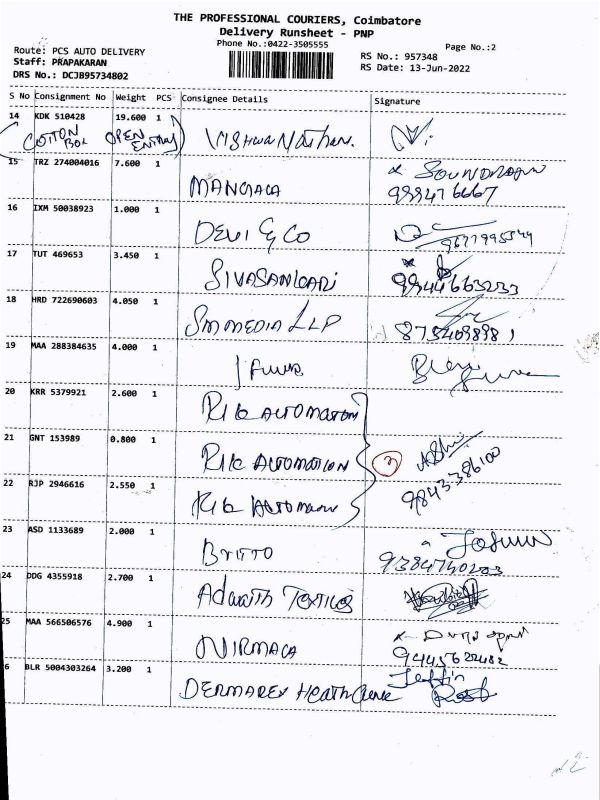 THE PROFESSIONAL COURIERS, Coimbatore
Delivery Runsheet - PNP
Phone No.:0422-3505555
Page No.:2
Route: PCS AUTO DELIVERY
Staff: PRAPAKARAN
DRS No.: DCJB95734802
RS No.: 957348
RS Date: 13-Jun-2022
S No Consignment No Weight PCS Consignee Details Signature
14 KDK 510428 19.600 1 VISHWANATHAN.
COTTON BOX OPEN ENTRY
15 TRZ 274004016 7.600 1 MANGALA
16 IXM 50038923 1.000 1 DEVI & CO
17 TUT 469653 3.450 1 SIVASANKARI
9944663233
18 HRD 722690603 4.050 1 SM MEDIA LLP
8754098981
19 MAA 288384635 4.000 1
20 KRR 5379921 2.600 1 RIK AUTOMATION
21 GNT 153989 0.800 1 RIK AUTOMATION
3
9843386100
22 RJP 2946616 2.550 1 RIK AUTOMATION
23 ASD 1133689 2.000 1 BRITTO
9384740203
24 DDG 4355918 2.700 1 Adwaith Textiles
25 MAA 566506576 4.900 1 NIRMALA
9445622482
6 BLR 5004303264 3.200 1 DERMAREX HEATH CARE
Jeffin